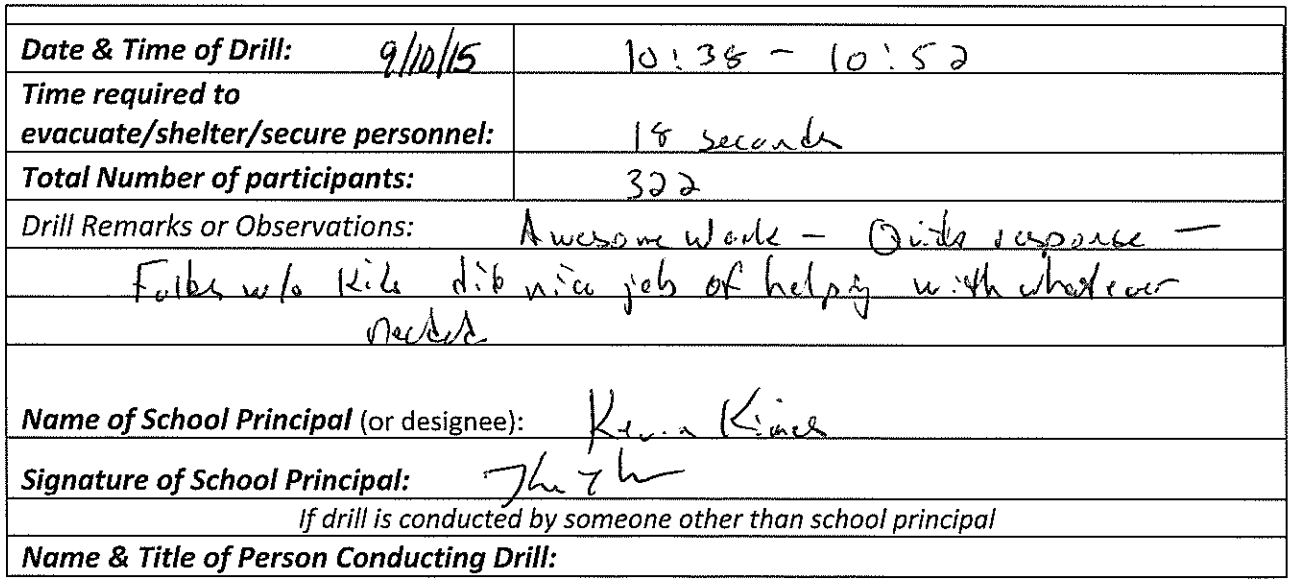 Date & Time of Drill: 9/10/15 10:38 - 10:52
Time required to
evacuate/shelter/secure personnel: 18 seconds
Total Number of participants: 322
Drill Remarks or Observations: Awesome Work - Quick response -
Folks w/o kids did nice job of helping with whatever
needed
Name of School Principal (or designee): Kevin
Signature of School Principal:
If drill is conducted by someone other than school principal
Name & Title of Person Conducting Drill: